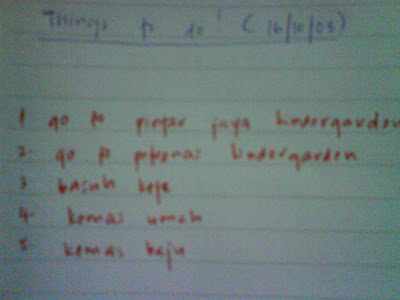 Things to do ( 16/10/03)
1 go to pintar jaya kindergarden
2. go to petronas kindergarden
3. basuh keje
4. kemas umah
5. kemas baju